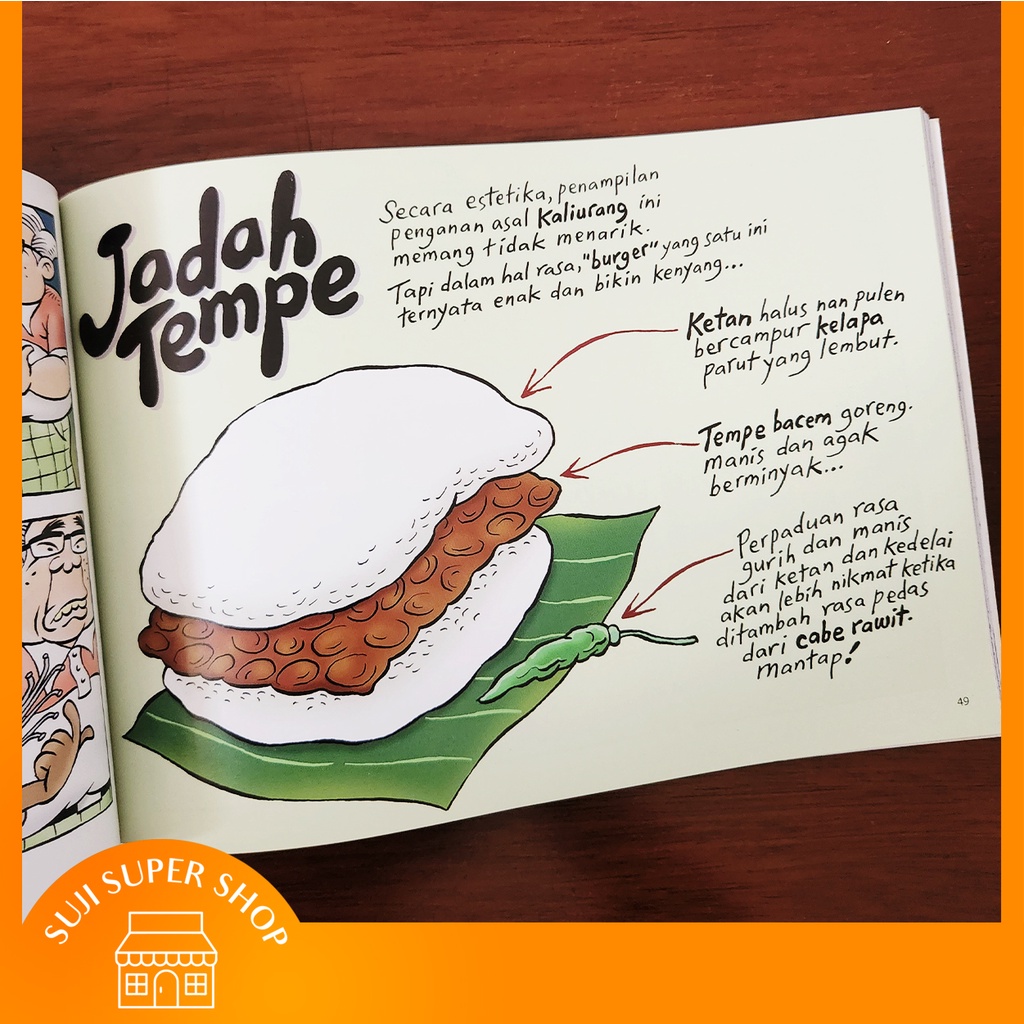 Jadah
Tempe
Secara estetika, penampilan
penganan asal Kaliurang ini
memang tidak menarik.
Tapi dalam hal rasa, "burger" yang satu ini
ternyata enak dan bikin kenyang...
Ketan halus nan pulen
bercampur kelapa
parut yang lembut.
Tempe bacem goreng.
manis dan agak
berminyak...
Perpaduan rasa
gurih dan manis
dari ketan dan kedelai
akan lebih nikmat ketika
ditambah rasa pedas
dari cabe rawit.
mantap!
49
SUJI SUPER SHOP